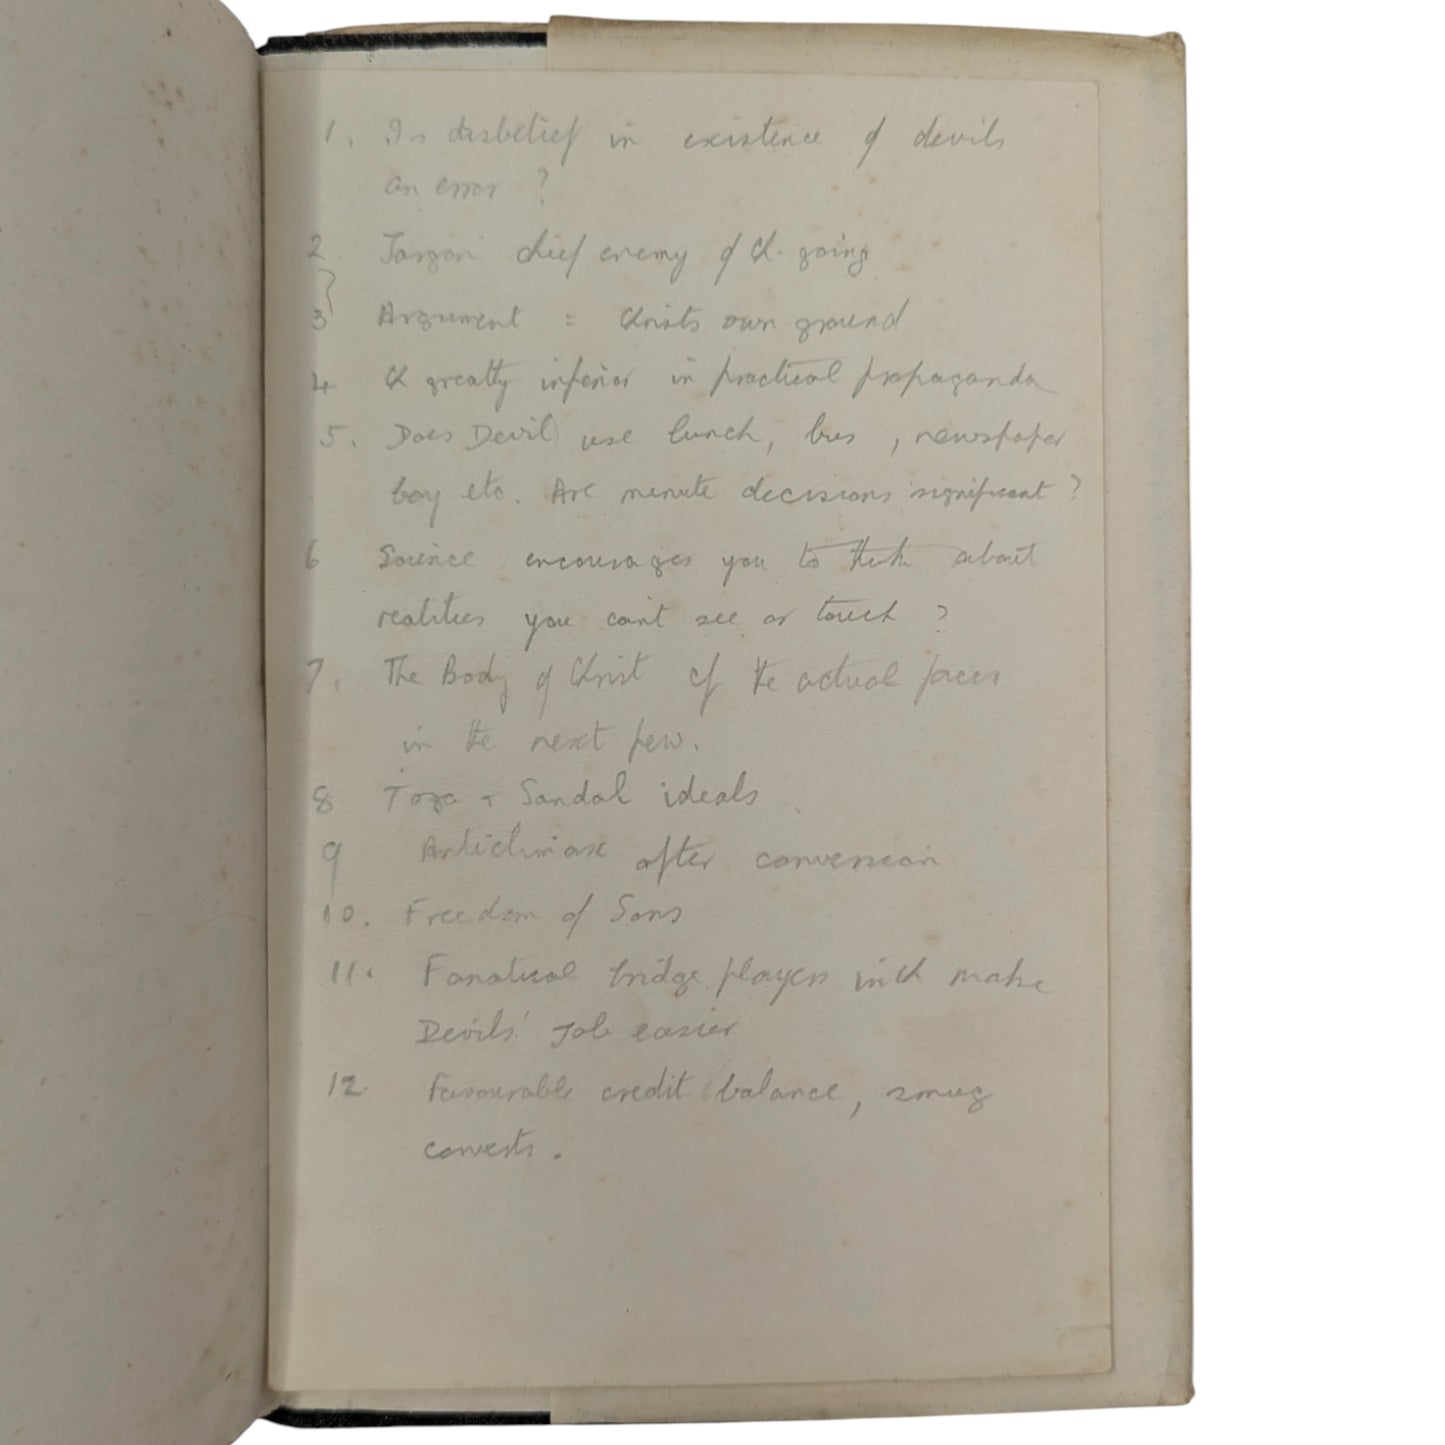 1. Is disbelief in existence of devils
an error ?
2. Jargon chief enemy of Ch. going
3 Argument = Christs own ground
4 Ch greatly inferior in practical propaganda
5. Does Devil use lunch, bus , newspaper
boy etc. Are minute decisions significant ?
6 Science encourages you to think about
realities you can't see or touch ?
7. The Body of Christ cf the actual faces
in the next pew.
8 Toga + Sandal ideals
9 Anticlimax after conversion
10. Freedom of Sons
11. Fanatical bridge players in Ch make
Devils' Job easier
12 Favourable credit balance, smug
converts.